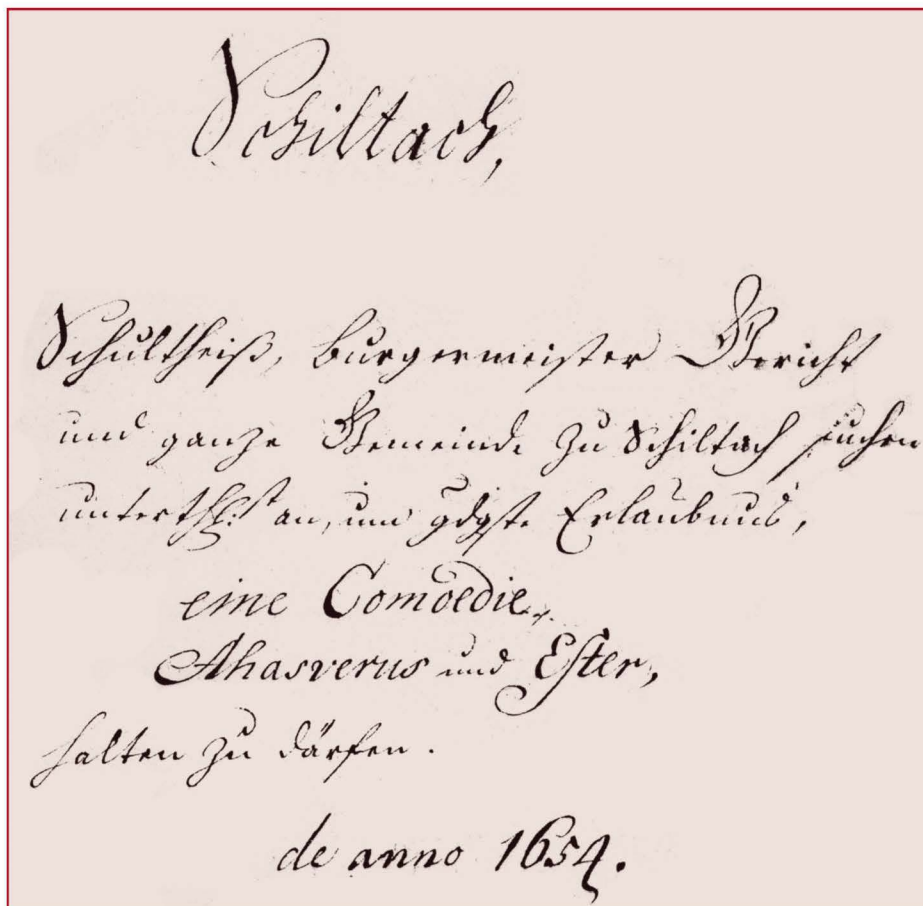 Schiltach,
Schultheiß, Burgermeister Gericht
und ganze Gemeinde zu Schiltach suchen
unterth:st an, um gdgste Erlaubnus,
eine Comoedie,
Ahasverus und Ester,
halten zu därfen.
de anno 1654.